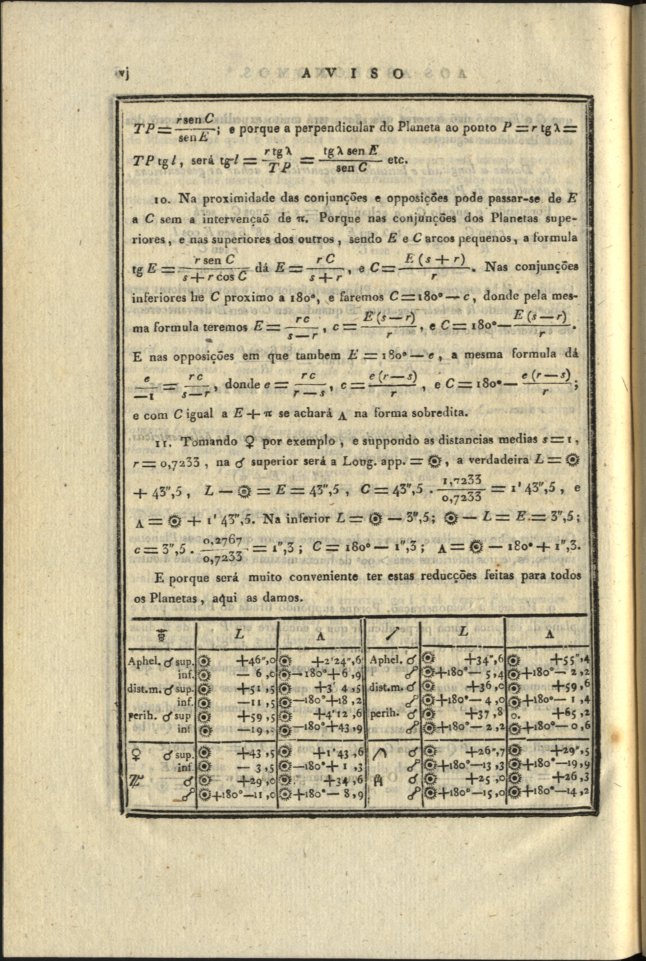 vj AVISO
TP = r sen C / sen E ; e porque a perpendicular do Planeta ao ponto P = r tg λ =
TP tg l, será tg l = r tg λ / TP = tg λ sen E / sen C etc.
10. Na proximidade das conjunções e opposições póde passar-se de E
a C sem a intervençaõ de π. Porque nas conjunções dos Planetas supe-
riores, e nas superiores dos outros, sendo E e C arcos pequenos, a formula
tg E = r sen C / s + r cos C dá E = r C / s + r , e C = E (s + r) / r . Nas conjunções
inferiores he C proximo a 180°, e faremos C = 180° — c, donde pela mes-
ma formula teremos E = r c / s — r , c = E (s — r) / r , e C = 180° — E (s — r) / r .
E nas opposições em que tambem E = 180° — e, a mesma formula dá
e / —1 = r c / s — r , donde e = r c / r — s , c = e (r — s) / r , e C = 180° — e (r — s) / r ;
e com C igual a E + π se achará Λ na fórma sobredita.
11. Tomando ♀ por exemplo, e suppondo as distancias medias s = 1,
r = 0,7233, na ☌ superior será a Long. app. = ☉, a verdadeira L = ☉
+ 43",5, L — ☉ = E = 43",5, C = 43",5 . 1,7233 / 0,7233 = 1' 43",5, e
Λ = ☉ + 1' 43",5. Na inferior L = ☉ — 3",5; ☉ — L = E = 3",5;
c = 3",5 . 0,2767 / 0,7233 = 1",3; C = 180° — 1",3; Λ = ☉ — 180° + 1",3.
E porque será muito conveniente ter estas reducções feitas para todos
os Planetas, aqui as damos.
☿ L Λ L Λ
Aphel. ☌ sup. ☉ +46",0 ☉ +2'24",6 Aphel. ☌ ☉ +34",6 ☉ +55",4
inf. ☉ — 6 ,0 ☉ —180°+ 6 ,9 ☍ ☉ +180°— 5 ,4 ☉ +180°— 2 ,2
dist.m. ☌ sup. ☉ +51 ,5 ☉ +3' 4 ,5 dist.m. ☌ ☉ +36 ,0 ☉ +59 ,6
inf. ☉ —11 ,5 ☉ —180°+18 ,2 ☍ ☉ +180°— 4 ,0 ☉ +180°— 1 ,4
perih. ☌ sup ☉ +59 ,5 ☉ +4'12 ,6 perih. ☌ ☉ +37 ,8 +65 ,2
inf ☉ —19 ☉ —180°+43 ,9 ☍ ☉ +180°— 2 ,2 ☉ +180°— 0 ,6
♀ ☌ sup. ☉ +43 ,5 ☉ +1'43 ,6 ☌ ☉ +26",7 ☉ +29",5
inf ☉ — 3 ,5 ☉ —180°+ 1 ,3 ☍ ☉ +180°—13 ,3 ☉ +180°—19 ,9
☌ ☉ +29 ,0 ☉ +34 ,6 ☌ ☉ +25 ,0 ☉ +26 ,3
☍ ☉ +180°—11 ,0 ☉ +180°— 8 ,9 ☍ ☉ +180°—15 ,0 ☉ +180°—14 ,2